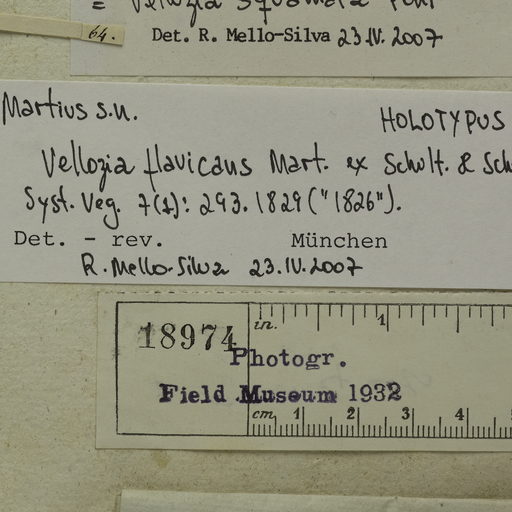 = Vellozia squamata Pohl
64.
Det. R. Mello-Silva 23.IV.2007
Martius s.n.
HOLOTYPUS
Vellozia flavicans Mart. ex Schult. & Sch
Syst. Veg. 7(1): 293. 1829 ("1826").
Det. - rev. München
R. Mello-Silva 23.IV.2007
18974
in. 1
Photogr.
Field Museum 1932
cm 1 2 3 4